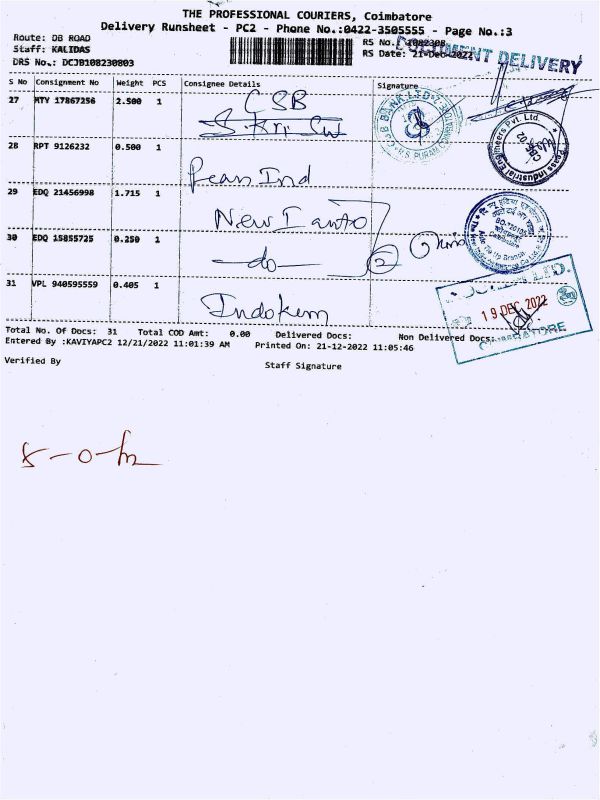 THE PROFESSIONAL COURIERS, Coimbatore
Delivery Runsheet - PC2 - Phone No.:0422-3505555 - Page No.:3
Route: DB ROAD
RS No.
Staff: KALIDAS
RS Date: 21-Dec-2022
DOCUMENT DELIVERY
DRS No.: DCJB108230803
S No Consignment No Weight PCS Consignee Details Signature
27 MTY 17867256 2.500 1 CSB
CSB BANK LTD
R.S. PURAM
28 RPT 9126232 0.500 1 Pean Ind
Engineers Pvt. Ltd.
29 EDQ 21456998 1.715 1 New I
30 EDQ 15855725 0.250 1 -do- 2
31 VPL 940595559 0.405 1 Indokem
19 DEC 2022
COIMBATORE
Total No. Of Docs: 31 Total COD Amt: 0.00 Delivered Docs: Non Delivered Docs:
Entered By :KAVIYAPC2 12/21/2022 11:01:39 AM Printed On: 21-12-2022 11:05:46
Verified By Staff Signature